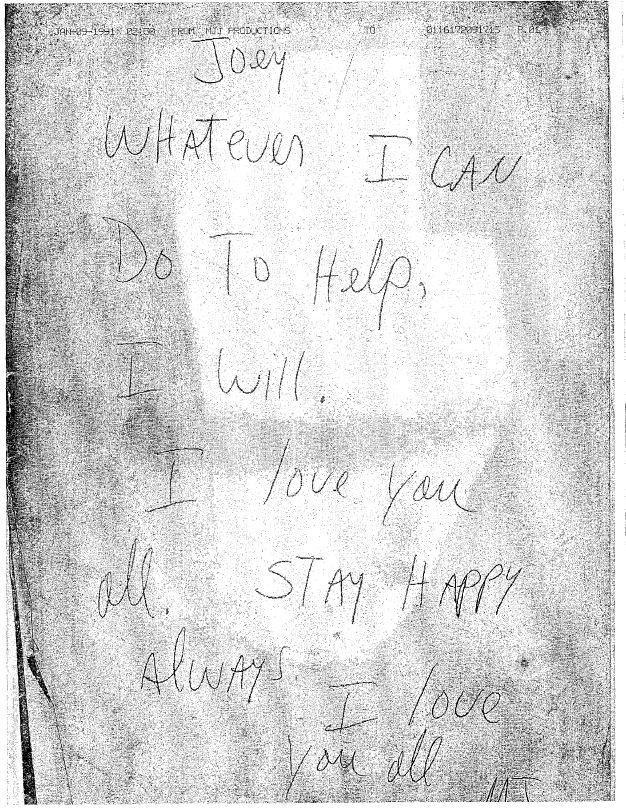 JAN-09-1991 02:50 FROM MJJ PRODUCTIONS TO P.01
Joey
WHATever I CAN
Do To Help,
I will.
I love you
all. STAY HAPPY
AlwAYS.
I love
you all
MJ